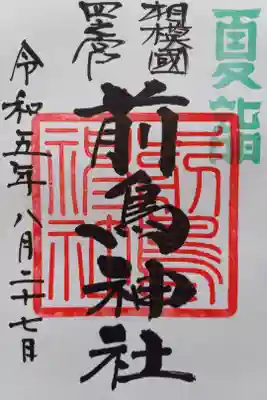 夏詣
相模國
四之宮
前鳥神社
令和五年八月二十七日
前鳥神社